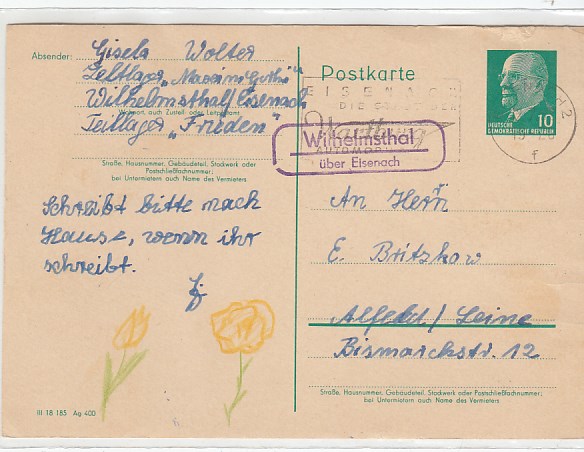 Absender:
Gisela Wolter
Zeltlager „Maxim Gorki"
Wilhelmsthal/Eisenach
Wohnort, auch Zustell- oder Leitpostamt
Teillager „Frieden"
Straße, Hausnummer, Gebäudeteil, Stadwerk oder
Postschließfachnummer;
bei Untermietern auch Name des Vermieters
Schreibt bitte nach
Hause, wenn ihr
schreibt.
III 18 185 Ag 400
Postkarte
EISENACH
DIE
Wartburg
AUTOMOB
Wilhelmsthal
über Eisenach
10
DEUTSCHE
DEMOKRATISCHE REPUBLIK
f
An Herrn
E. Britzkow
Alfeld/Leine
Bismarckstr. 12
Straße, Hausnummer, Gebäudeteil, Stadwerk oder Postschließfachnummer;
bei Untermietern auch Name des Vermieters